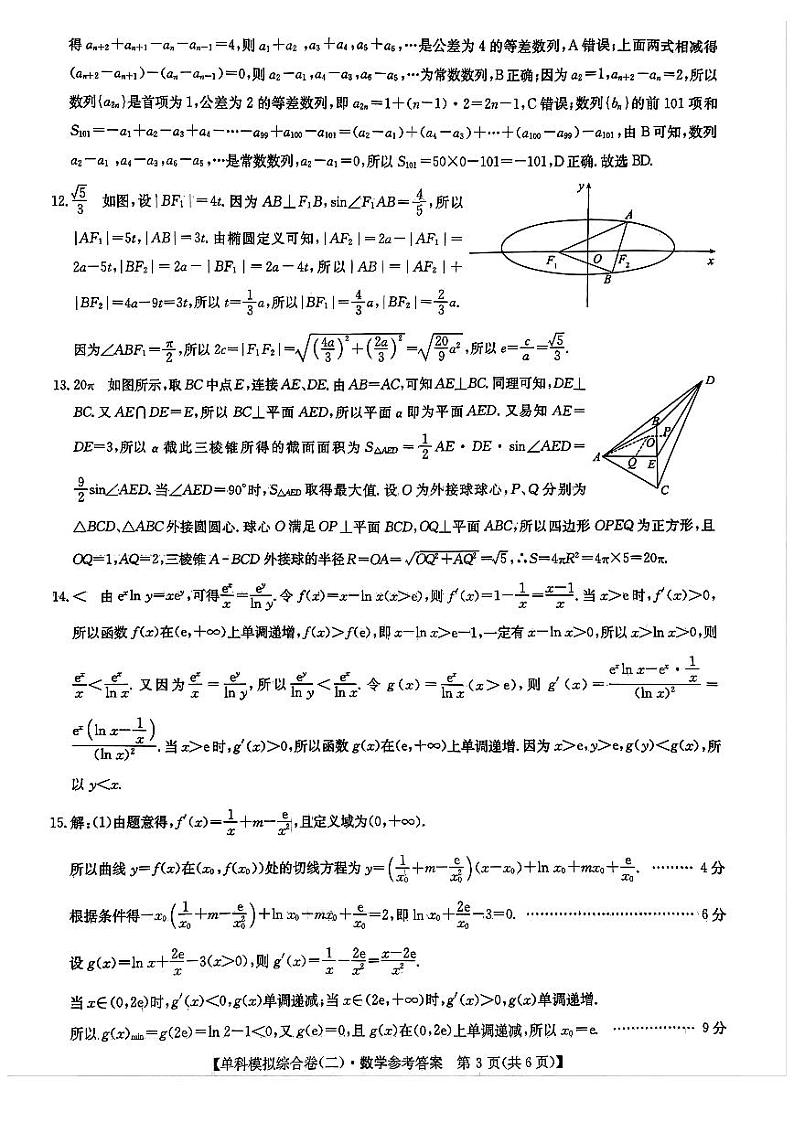 得 aₙ₊₂+aₙ₊₁-aₙ-aₙ₋₁=4,则 a₁+a₂,a₃+a₄,a₅+a₆,…是公差为 4 的等差数列,A 错误;上面两式相减得
(aₙ₊₂-aₙ₊₁)-(aₙ-aₙ₋₁)=0,则 a₂-a₁,a₄-a₃,a₆-a₅,…为常数数列,B 正确;因为 a₂=1,aₙ₊₂-aₙ=2,所以
数列{a₂ₙ}是首项为 1,公差为 2 的等差数列,即 a₂ₙ=1+(n-1)·2=2n-1,C 错误;数列{bₙ}的前 101 项和
S₁₀₁=-a₁+a₂-a₃+a₄-…-a₉₉+a₁₀₀-a₁₀₁=(a₂-a₁)+(a₄-a₃)+…+(a₁₀₀-a₉₉)-a₁₀₁,由 B 可知,数列
a₂-a₁,a₄-a₃,a₆-a₅,…是常数数列,a₂-a₁=0,所以 S₁₀₁=50×0-101=-101,D 正确.故选 BD.
12. √5/3 如图,设|BF₁|=4t.因为 AB⊥F₁B,sin∠F₁AB=4/5,所以
|AF₁|=5t,|AB|=3t.由椭圆定义可知,|AF₂|=2a-|AF₁|=
2a-5t,|BF₂|=2a-|BF₁|=2a-4t,所以|AB|=|AF₂|+
|BF₂|=4a-9t=3t,所以 t=1/3 a,所以|BF₁|=4/3 a,|BF₂|=2/3 a.
因为∠ABF₁=π/2,所以 2c=|F₁F₂|=√((4a/3)²+(2a/3)²)=√(20/9 a²),所以 e=c/a=√5/3.
y
A
F₁
O
F₂
B
x
13. 20π 如图所示,取 BC 中点 E,连接 AE、DE.由 AB=AC,可知 AE⊥BC.同理可知,DE⊥
BC.又 AE∩DE=E,所以 BC⊥平面 AED,所以平面 α 即为平面 AED.又易知 AE=
DE=3,所以 α 截此三棱锥所得的截面面积为 S△AED=1/2 AE·DE·sin∠AED=
9/2 sin∠AED.当∠AED=90°时,S△AED取得最大值.设 O 为外接球球心,P、Q 分别为
△BCD、△ABC 外接圆圆心.球心 O 满足 OP⊥平面 BCD,OQ⊥平面 ABC,所以四边形 OPEQ 为正方形,且
OQ=1,AQ=2,三棱锥 A-BCD 外接球的半径 R=OA=√(OQ²+AQ²)=√5,∴S=4πR²=4π×5=20π.
D
B
O
P
A
Q
E
C
14. < 由 eˣln y=xeʸ,可得 eˣ/x=eʸ/ln y.令 f(x)=x-ln x(x>e),则 f′(x)=1-1/x=(x-1)/x.当 x>e 时,f′(x)>0,
所以函数 f(x)在(e,+∞)上单调递增,f(x)>f(e),即 x-ln x>e-1,一定有 x-ln x>0,所以 x>ln x>0,则
eˣ/x<eˣ/ln x.又因为 eˣ/x=eʸ/ln y,所以 eʸ/ln y<eˣ/ln x.令 g(x)=eˣ/ln x(x>e),则 g′(x)=(eˣln x-eˣ·1/x)/(ln x)²=
eˣ(ln x-1/x)/(ln x)².当 x>e 时,g′(x)>0,所以函数 g(x)在(e,+∞)上单调递增.因为 x>e,y>e,g(y)<g(x),所
以 y<x.
15. 解:(1)由题意得,f′(x)=1/x+m-e/x²,且定义域为(0,+∞).
所以曲线 y=f(x)在(x₀,f(x₀))处的切线方程为 y=(1/x₀+m-e/x₀²)(x-x₀)+ln x₀+mx₀+e/x₀. ……… 4 分
根据条件得-x₀(1/x₀+m-e/x₀²)+ln x₀+mx₀+e/x₀=2,即 ln x₀+2e/x₀-3=0. ……………………………… 6 分
设 g(x)=ln x+2e/x-3(x>0),则 g′(x)=1/x-2e/x²=(x-2e)/x².
当 x∈(0,2e)时,g′(x)<0,g(x)单调递减;当 x∈(2e,+∞)时,g′(x)>0,g(x)单调递增.
所以 g(x)min=g(2e)=ln 2-1<0,又 g(e)=0,且 g(x)在(0,2e)上单调递减,所以 x₀=e. ……………… 9 分
【单科模拟综合卷(二)·数学参考答案 第 3 页(共 6 页)】